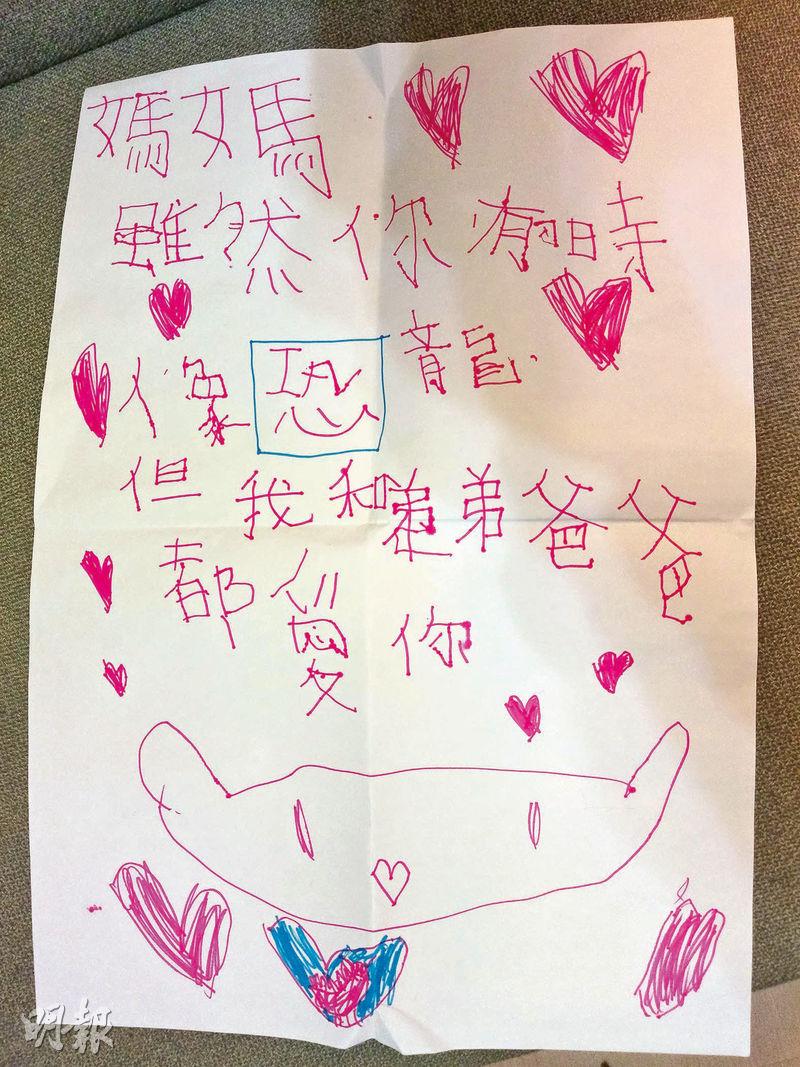 媽媽
雖然你有時
像恐龍
但我和弟弟爸爸
都愛你
明報